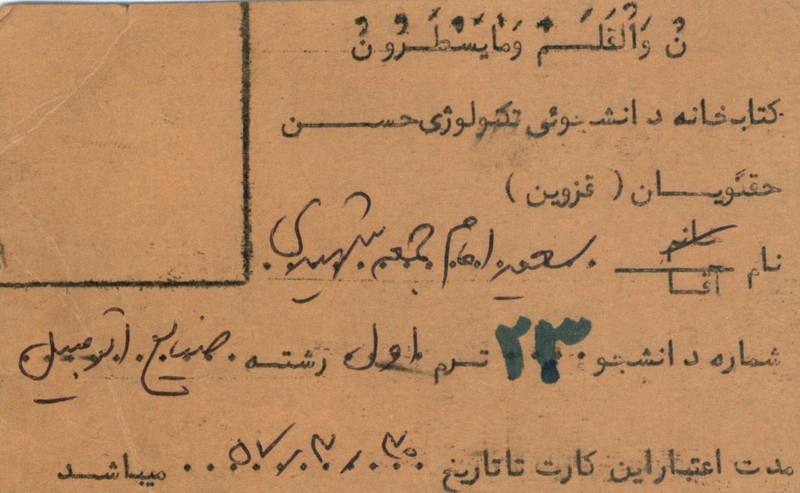 نۤ وَالْقَلَمِ وَمَا يَسْطُرُونَ
کتابخانه دانشجوئی تکنولوژی حسن
حقگویان ( قزوین )
نام خانم آقا سعید امام جمعه شهیدی
شماره دانشجو ۲۳ ترم اول رشته صنایع اتومبیل
مدت اعتبار این کارت تا تاریخ ۵۷/۳/۳۰ میباشد